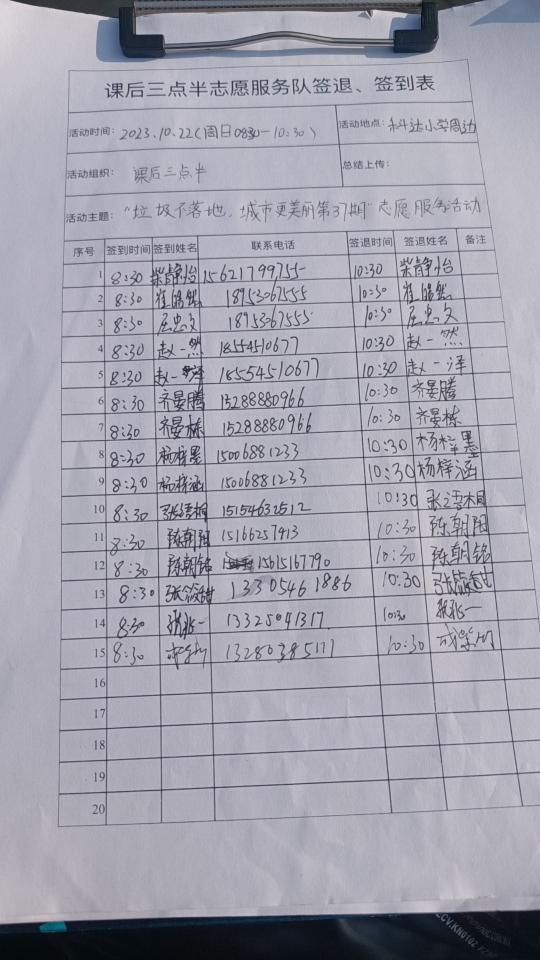 课后三点半志愿服务队签退、签到表
活动时间: 2023.10.22(周日0830-10:30) 活动地点: 科达小学周边
活动组织: 课后三点半 总结上传:
活动主题: "垃圾不落地,城市更美丽第37期"志愿服务活动
序号 签到时间 签到姓名 联系电话 签退时间 签退姓名 备注
1 8:30 柴静怡 15621799755 10:30 柴静怡
2 8:30 崔皓然 18753367555 10:30 崔皓然
3 8:30 屈忠文 18753367555 10:30 屈忠文
4 8:30 赵一然 18554510677 10:30 赵一然
5 8:30 赵一泽 18554510677 10:30 赵一泽
6 8:30 齐晏腾 15288880966 10:30 齐晏腾
7 8:30 齐晏栋 15288880966 10:30 齐晏栋
8 8:30 杨梓墨 15006881233 10:30 杨梓墨
9 8:30 杨梓涵 15006881233 10:30 杨梓涵
10 8:30 15154632512 10:30
11 8:30 陈朝阳 15166257913 10:30 陈朝阳
12 8:30 陈朝铭 15615167790 10:30 陈朝铭
13 8:30 13305461886 10:30
14 8:30 13325041317 10:30
15 8:30 13280385111 10:30
16
17
18
19
20